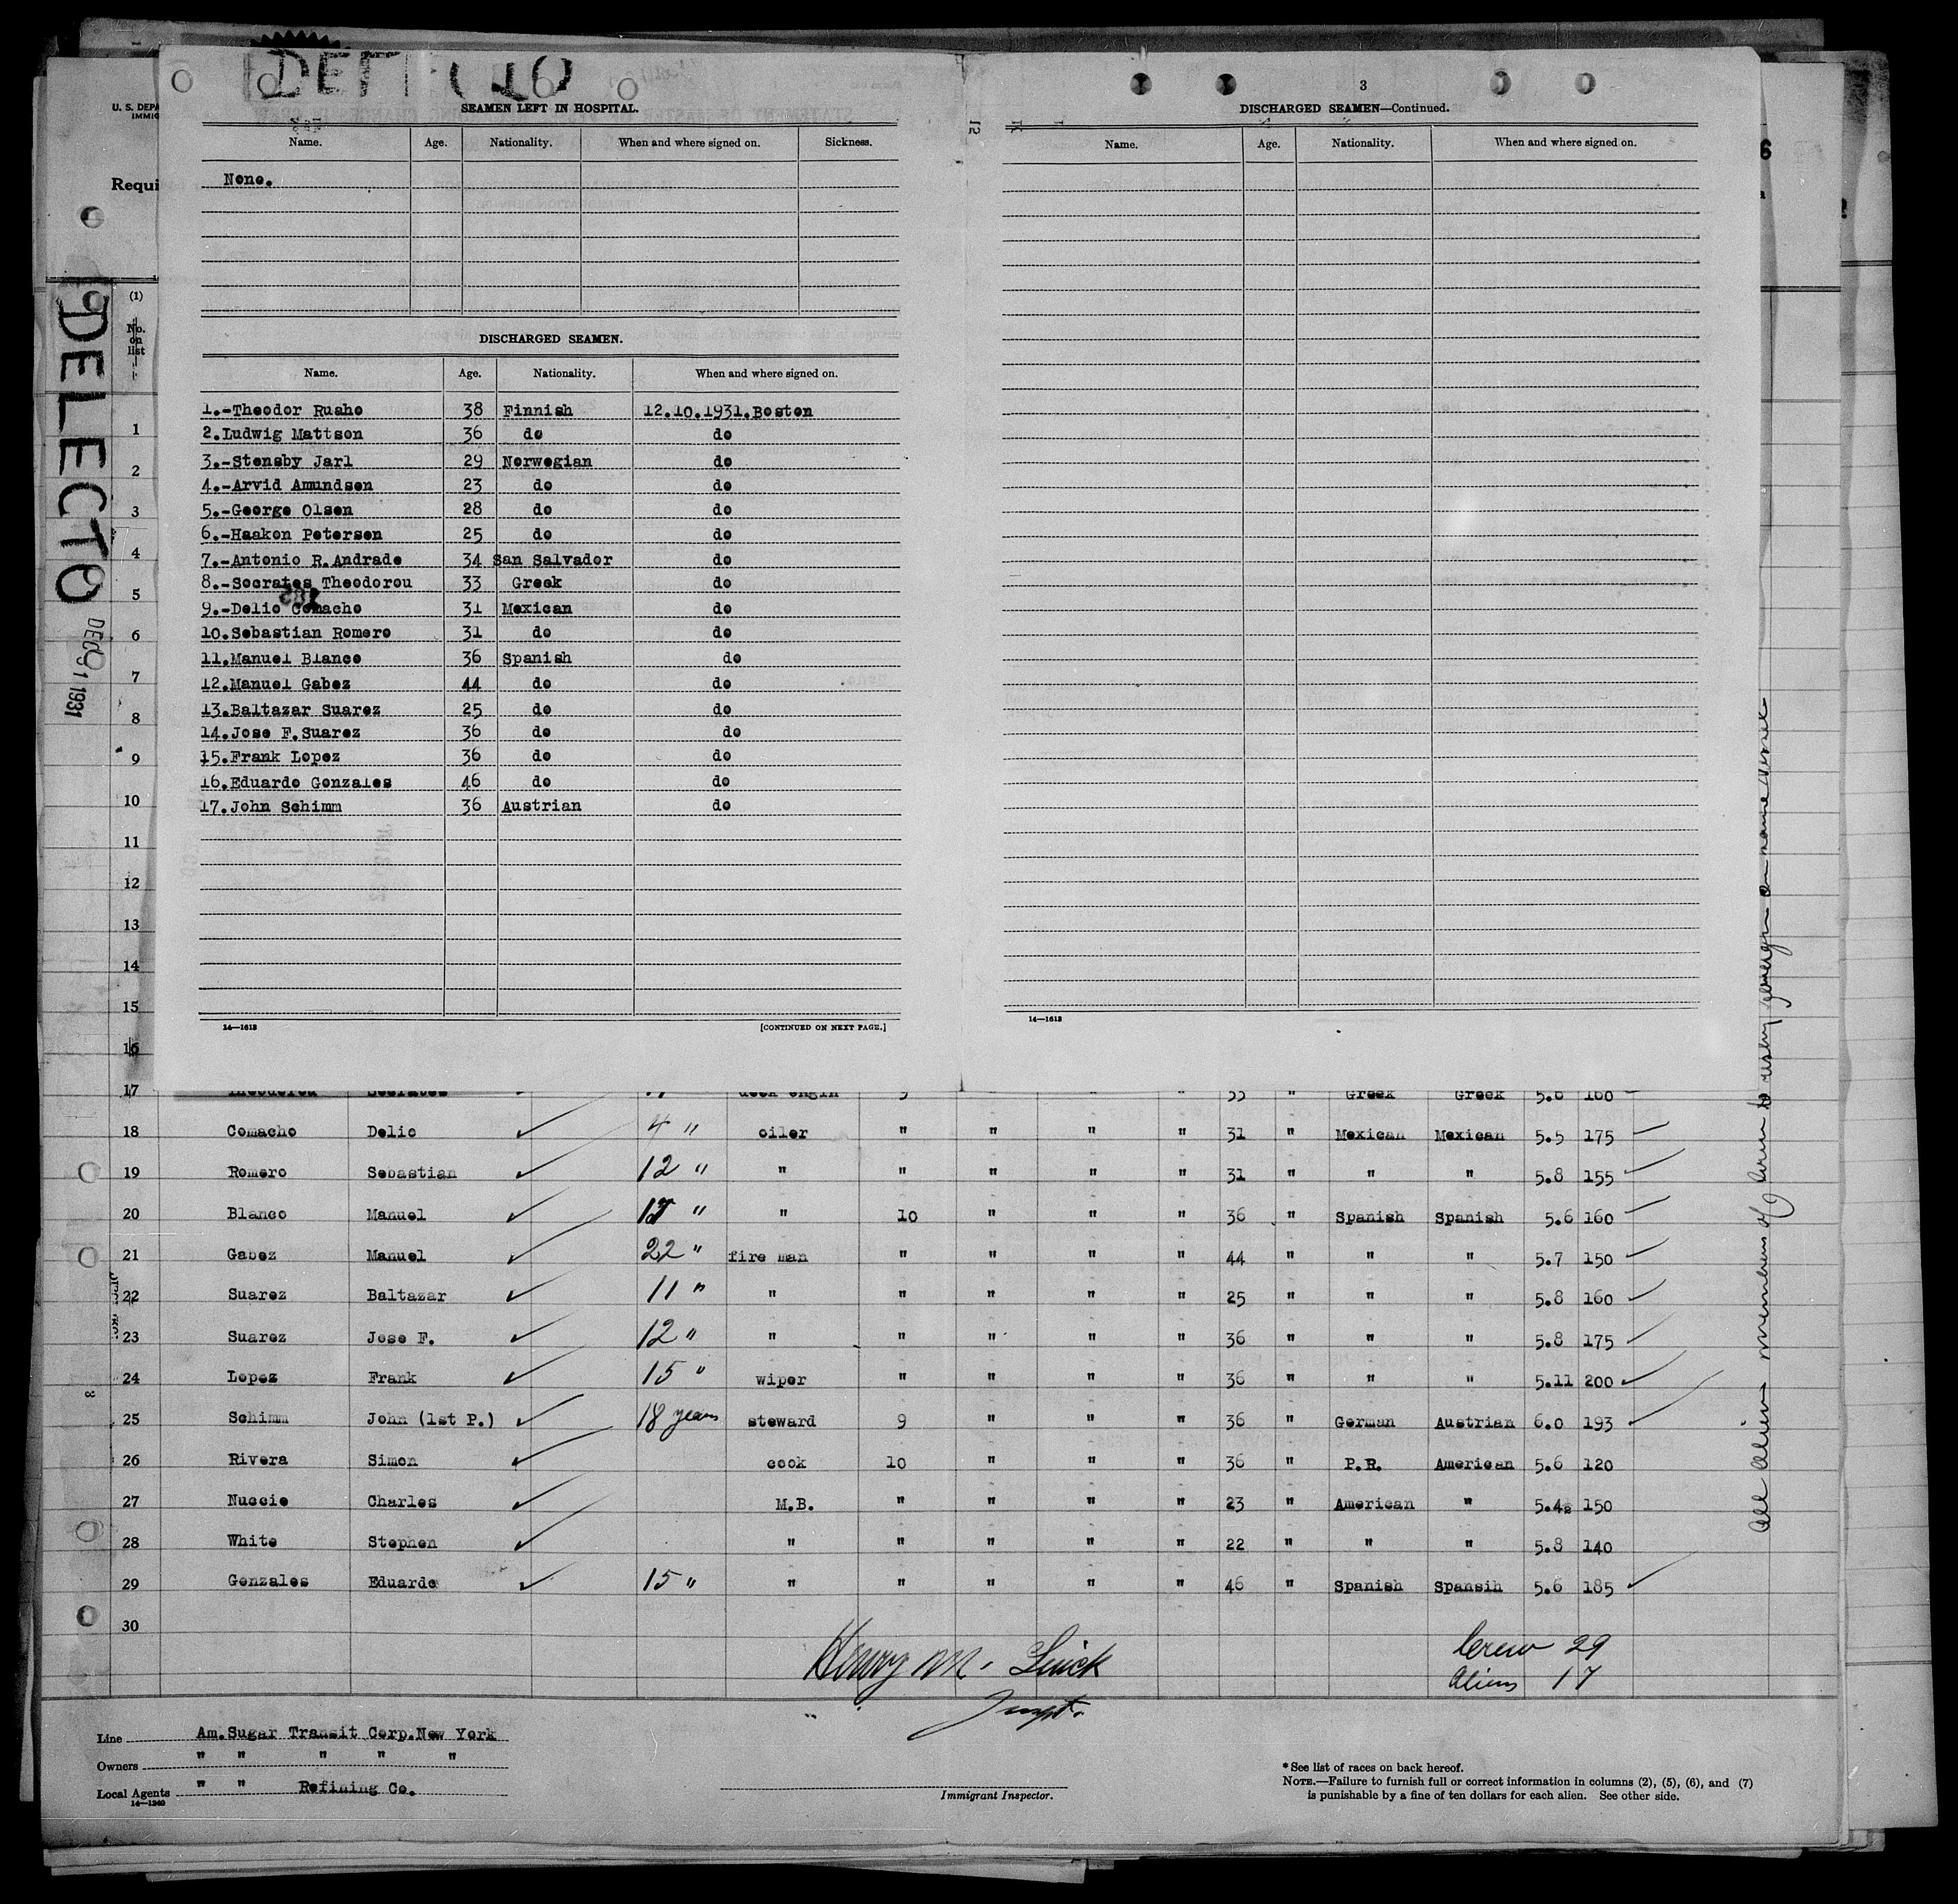 SEAMEN LEFT IN HOSPITAL.
Name. Age. Nationality. When and where signed on. Sickness.
None.
DISCHARGED SEAMEN.
Name. Age. Nationality. When and where signed on.
1.-Theodor Ruaho 38 Finnish 12.10.1931.Boston
2.Ludwig Mattson 36 do do
3.-Stensby Jarl 29 Norwegian do
4.-Arvid Amundsen 23 do do
5.-George Olsen 28 do do
6.-Haakon Petersen 25 do do
7.-Antonio R.Andrade 34 San Salvador do
8.-Socrates Theodorou 33 Greek do
9.-Delio Comacho 31 Mexican do
10.Sebastian Romero 31 do do
11.Manuel Blanco 36 Spanish do
12.Manuel Gabez 44 do do
13.Baltazar Suarez 25 do do
14.Jose F.Suarez 36 do do
15.Frank Lopez 36 do do
16.Eduardo Gonzales 46 do do
17.John Schimm 36 Austrian do
14—1613
[CONTINUED ON NEXT PAGE.]
3
DISCHARGED SEAMEN—Continued.
Name. Age. Nationality. When and where signed on.
14—1613
U. S. DEPA
IMMIG
Requi
DELECTO
DEC 1 1931
(1)
No.
on
list
1
2
3
4
5
6
7
8
9
10
11
12
13
14
15
16
17 Socrates " deck engin 9 " " " 33 " Greek Greek 5.6 160
18 Comacho Delio 4 " oiler " " " " 31 " Mexican Mexican 5.5 175
19 Romero Sebastian 12 " " " " " " 31 " " " 5.8 155
20 Blanco Manuel " " 10 " " " 36 " Spanish Spanish 5.6 160
21 Gabez Manuel 22 " fire man " " " " 44 " " " 5.7 150
22 Suarez Baltazar 11 " " " " " " 25 " " " 5.8 160
23 Suarez Jose F. 12 " " " " " " 36 " " " 5.8 175
24 Lopez Frank 15 " wiper " " " " 36 " " " 5.11 200
25 Schimm John (1st P.) 18 years steward 9 " " " 36 " German Austrian 6.0 193
26 Rivera Simon cook 10 " " " 36 " P.R. American 5.6 120
27 Nuccio Charles M.B. " " " " 23 " American " 5.4½ 150
28 White Stephen " " " " " 22 " " " 5.8 140
29 Gonzales Eduardo 15 " " " " " " 46 " Spanish Spansih 5.6 185
30
Crew 29
Aliens 17
Henry M. Linick
Inspt.
All alien members of crew to reship foreign on same vessel
Line Am.Sugar Transit Corp.New York
Owners " " " " "
Local Agents " " Refining Co.
14—1240
Immigrant Inspector.
*See list of races on back hereof.
NOTE.—Failure to furnish full or correct information in columns (2), (5), (6), and (7)
is punishable by a fine of ten dollars for each alien. See other side.